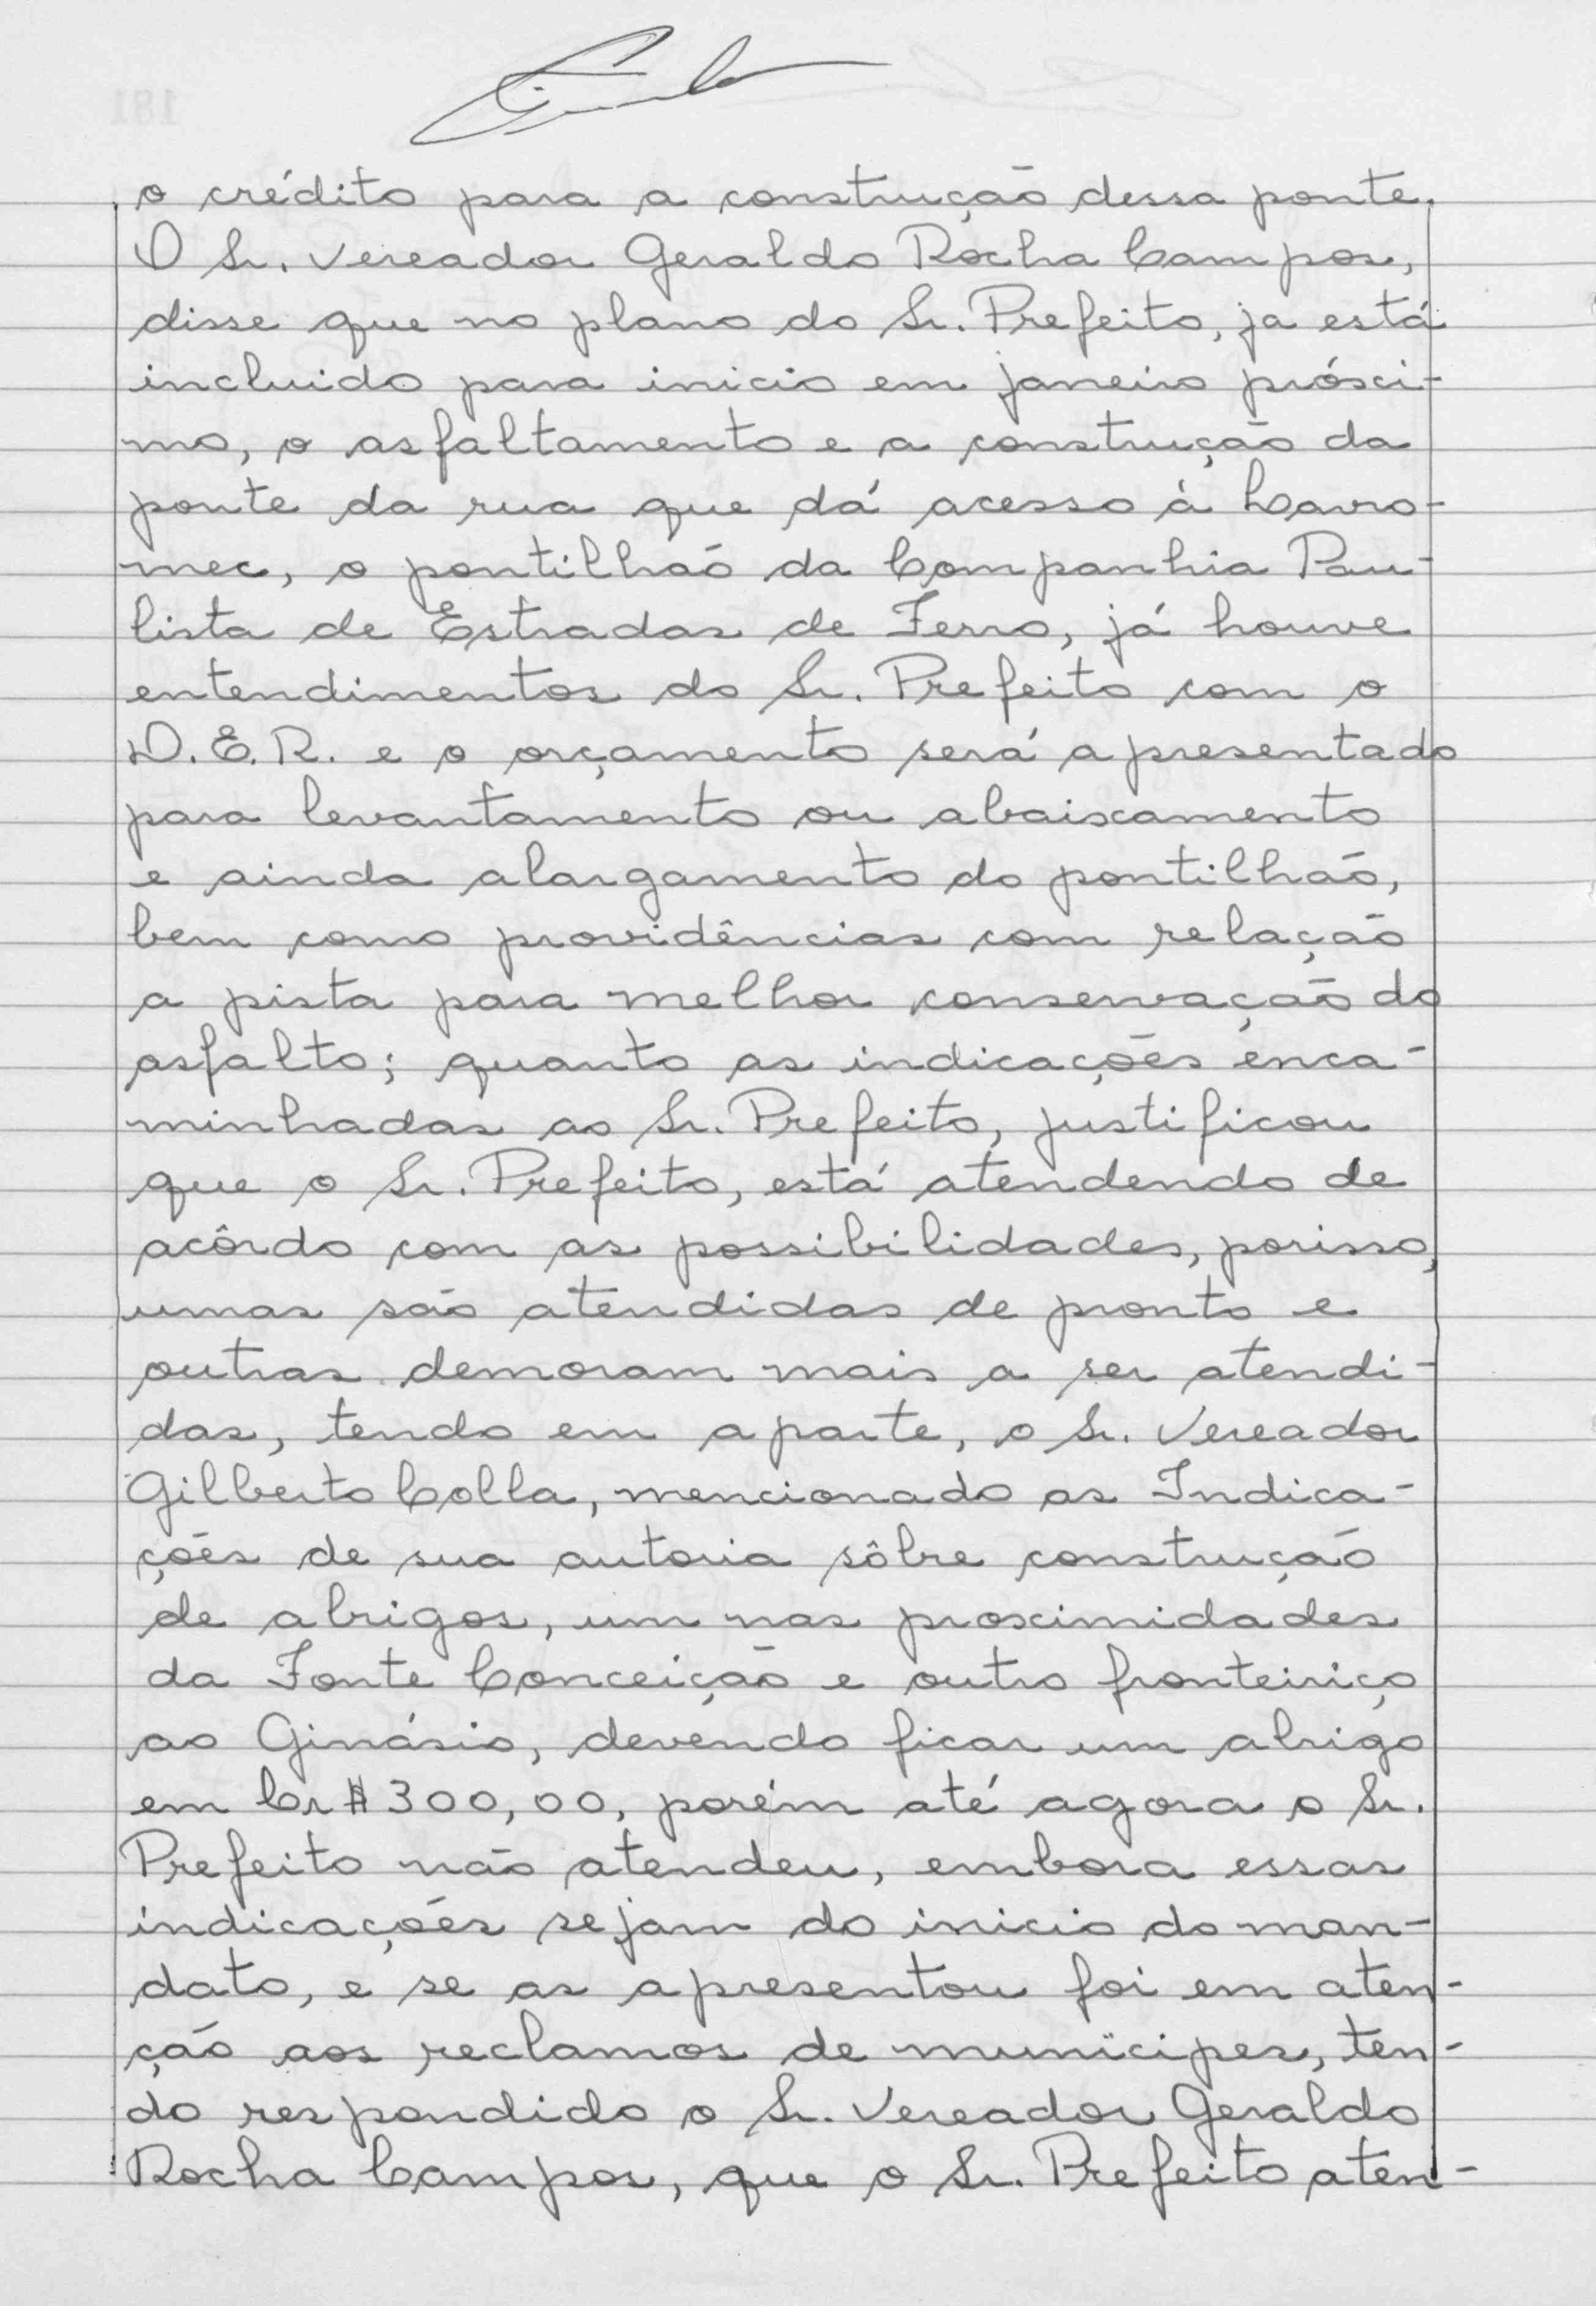 o crédito para a construção dessa ponte.
O Sr. Vereador Geraldo Rocha Campos,
disse que no plano do Sr. Prefeito, ja está
incluido para inicio em janeiro próxi-
mo, o asfaltamento e a construção da
ponte da rua que dá acesso à Lavro-
mec, o pontilhão da Companhia Pau-
lista de Estradas de Ferro, já houve
entendimentos do Sr. Prefeito com o
D.E.R. e o orçamento será apresentado
para levantamento ou abaixamento
e ainda alargamento do pontilhão,
bem como providências com relação
a pista para melhor conservação do
asfalto; quanto as indicações enca-
minhadas ao Sr. Prefeito, justificou
que o Sr. Prefeito, está atendendo de
acôrdo com as possibilidades, porisso,
umas são atendidas de pronto e
outras demoram mais a ser atendi-
das, tendo em aparte, o Sr. Vereador
Gilberto Colla, mencionado as Indica-
ções de sua autoria sôbre construção
de abrigos, um nas proximidades
da Fonte Conceição e outro fronteiriço
ao Ginásio, devendo ficar um abrigo
em Cr$ 300,00, porém até agora o Sr.
Prefeito não atendeu, embora essas
indicações sejam do inicio do man-
dato, e se as apresentou foi em aten-
ção aos reclamos de municipes, ten-
do respondido o Sr. Vereador Geraldo
Rocha Campos, que o Sr. Prefeito aten-